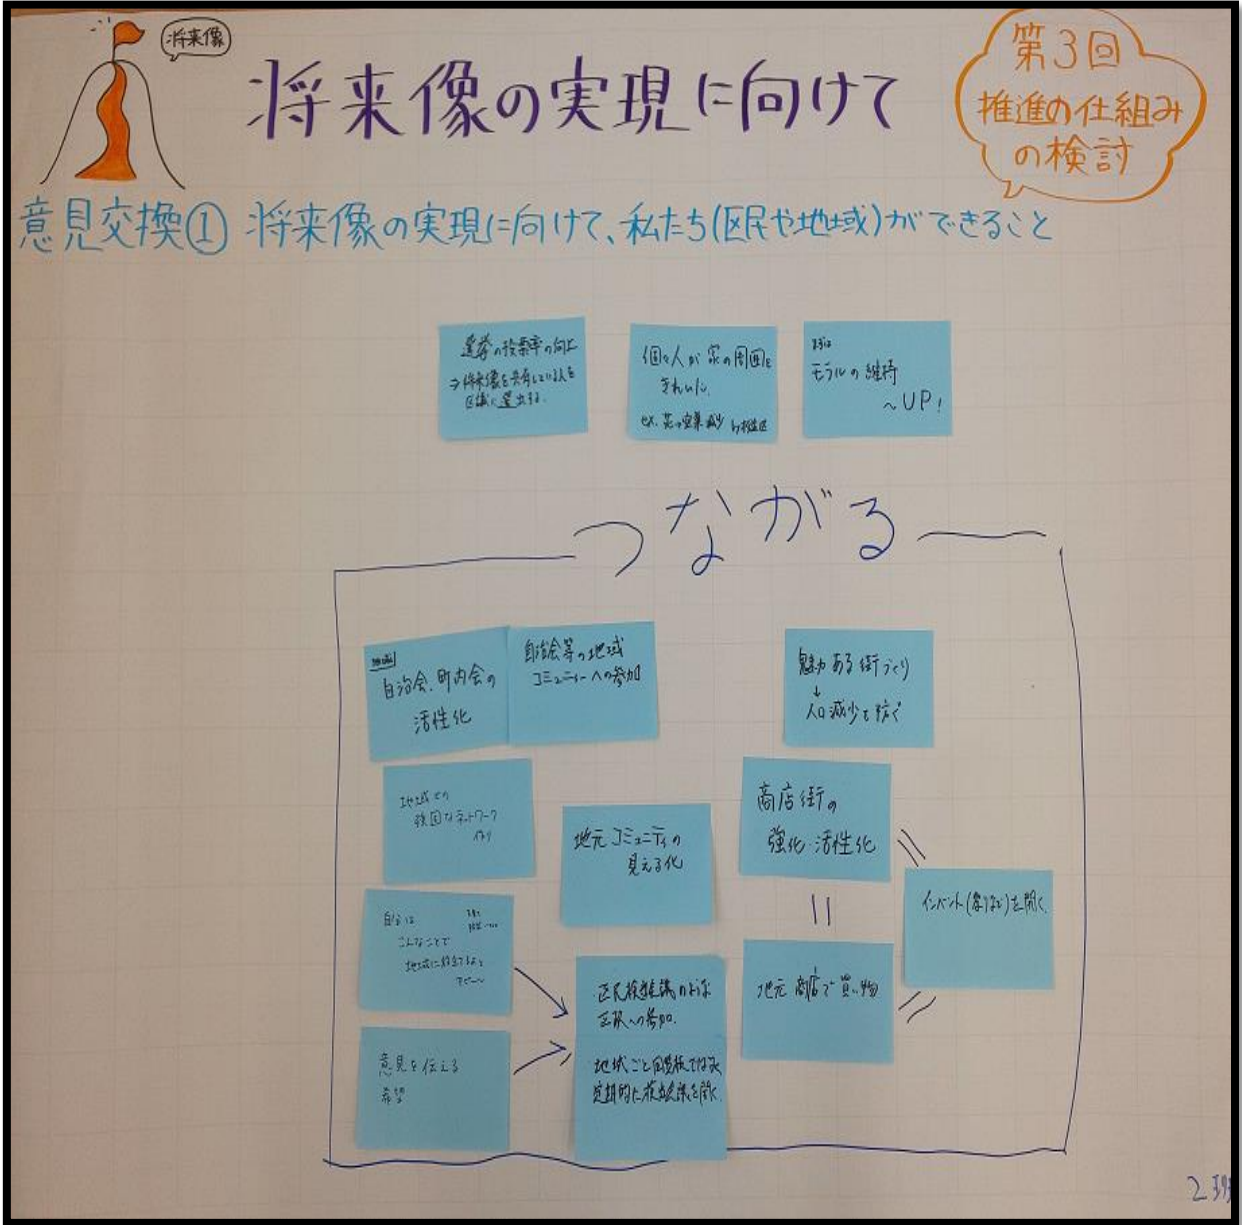 将来像
将来像の実現に向けて
第3回
推進の仕組み
の検討
意見交換① 将来像の実現に向けて、私たち(区民や地域)ができること
選挙の投票率の向上
⇒将来像を共有している人を
区議に選出する。
個々人が家の周囲を
きれいに。
モラルの維持
～UP!
つながる
地域
自治会、町内会の
活性化
自治会等の地域
コミュニティーへの参加
魅力ある街づくり
↓
人口減少を防ぐ
地域での
強固なネットワーク
作り
地元コミュニティの
見える化
商店街の
強化・活性化
イベント(祭りなど)を開く
自分は
こんなことで
地域に役立てるよと
アピール
区民検討会議のような
区政への参加。
地元商店で買い物
意見を伝える
希望
地域ごと回覧板ではなく
定期的に
を開く
2班